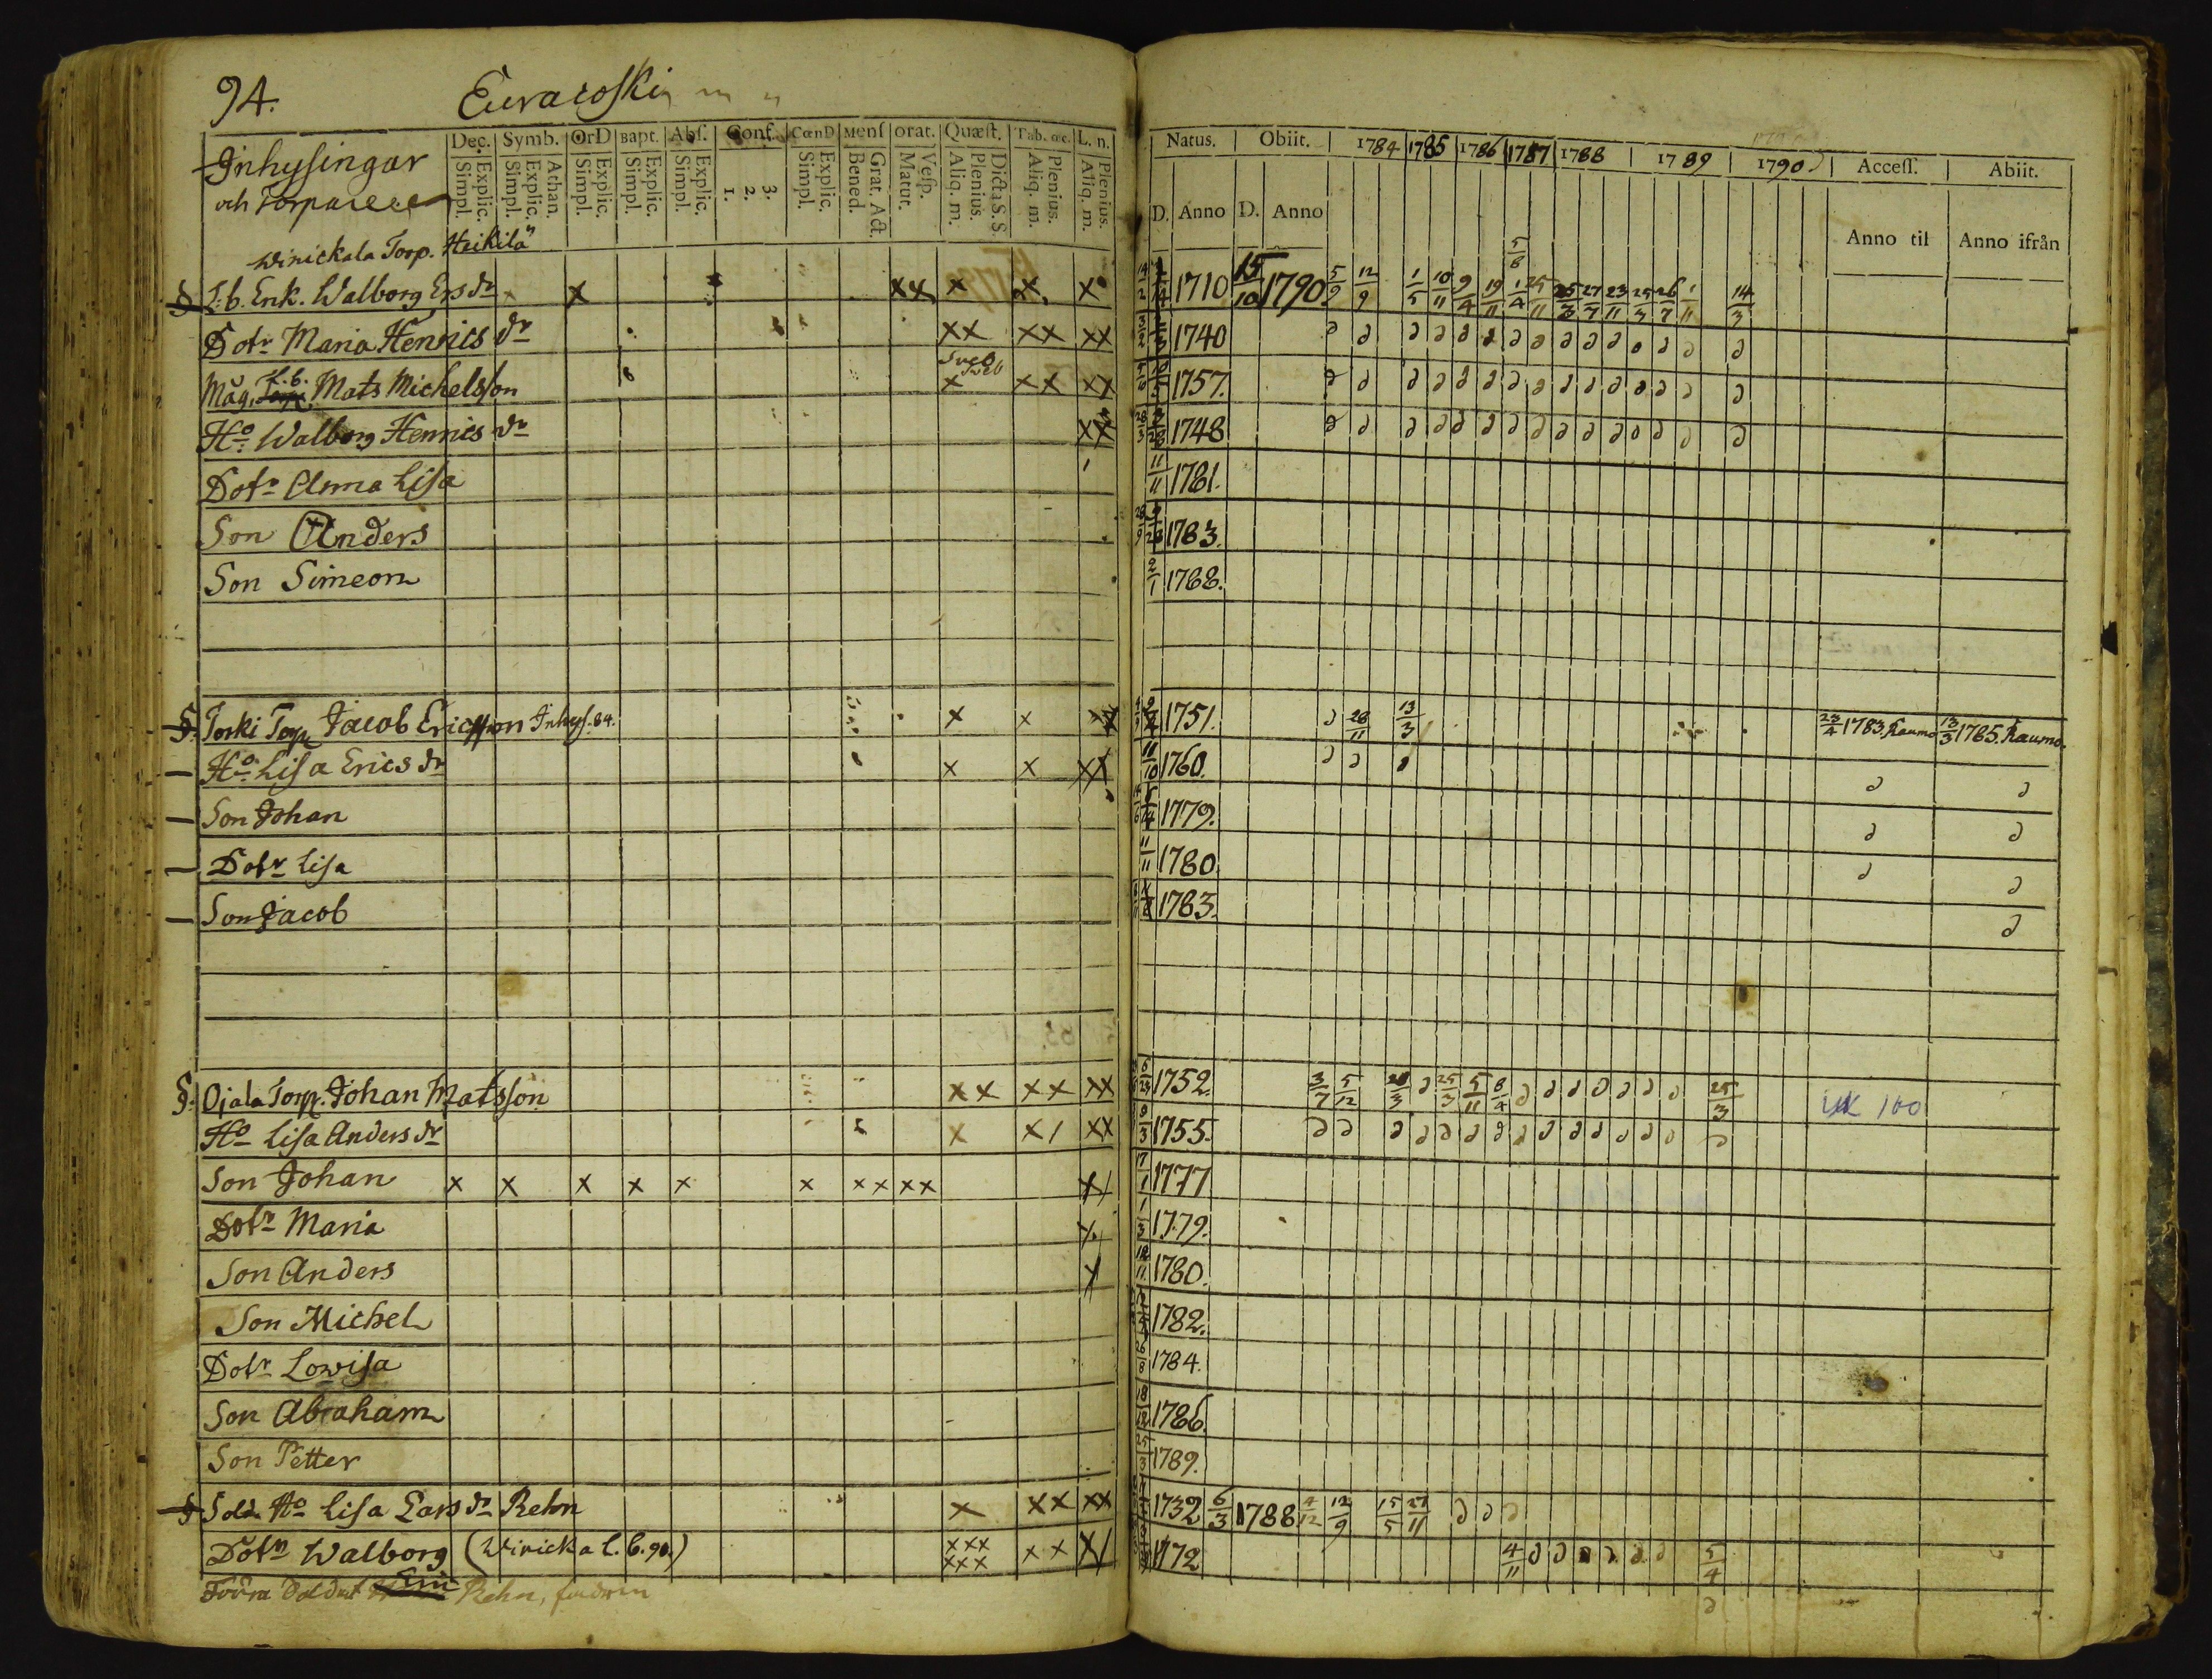 94. Euracoski
Dec. Symb. OrD Bapt. Abſ. Conf. CœnD Menſ orat. Quæſt. Tab. œc. L. n. Natus. Obiit. 1784 1785 1786 1787 1788 1789 1790 Acceſſ. Abiit.
Inhysingar
och
Explic. Simpl. Athan. Explic. Simpl. Explic. Simpl. Explic. Simpl. Explic. Simpl. 3. 2. 1. Explic. Simpl. Grat. Act. Bened. Veſp. Matut. Dicta S. S. Plenius. Aliq. m. Plenius. Aliq. m. Plenius. Aliq. m. D. Anno D. Anno Anno til Anno ifrån
Winickala Torp. Heikilä
I:b. Enk. Walborg Ers dr x x xx x x x 1710 15/10 1790 5/9 12/9 1/5 10/11 9/4 19/11 1/4 25/11 25/3 27/7 23/11 25/3 26/7 1/11 14/3
5/8
Dotr Maria Henrics dr xx xx xx 1740
Måg, I.b. Mats Michelsson x xx xx 1757.
Ho Walborg Henrics dr xx 1748
Dotr Anna Lisa 11/11 1781.
Son Anders 1783.
Son Simeon 2/1 1788.
§. Torki Torp Jacob Ericsson Inhys. 84. x x 1751. 28/11 13/3 23/4 1783. Raumo 13/3 1785. Raumo.
Ho Lisa Erics dr x x xx 11/10 1760.
Son Johan 1779.
Dotr Lisa 11/11 1780
Son Jacob 1783.
§. Ojala Torp. Johan Matsson xx xx xx 1752 3/7 5/12 28/3 25/3 5/11 8/4 25/3 100
Ho Lisa Anders dr x x/ xx 1755.
Son Johan x x x x x x x x x x x/ 17/1 1777
Dotr Maria x. 1/3 1779.
Son Anders x 1780.
Son Michel 1782.
Dotr Lowisa 26/8 1784.
Son Abraham 18/12 1786.
Son Petter 25/3 1789.
§ Sold. Ho Lisa Lars dr Rehn x xx xx 1732 6/3 1788 4/12 12/9 15/5 27/11
Dotr Walborg (Wirick a l. b. 90.) xxx xxx xx x/ 1772 4/11 5/4
Rehn,